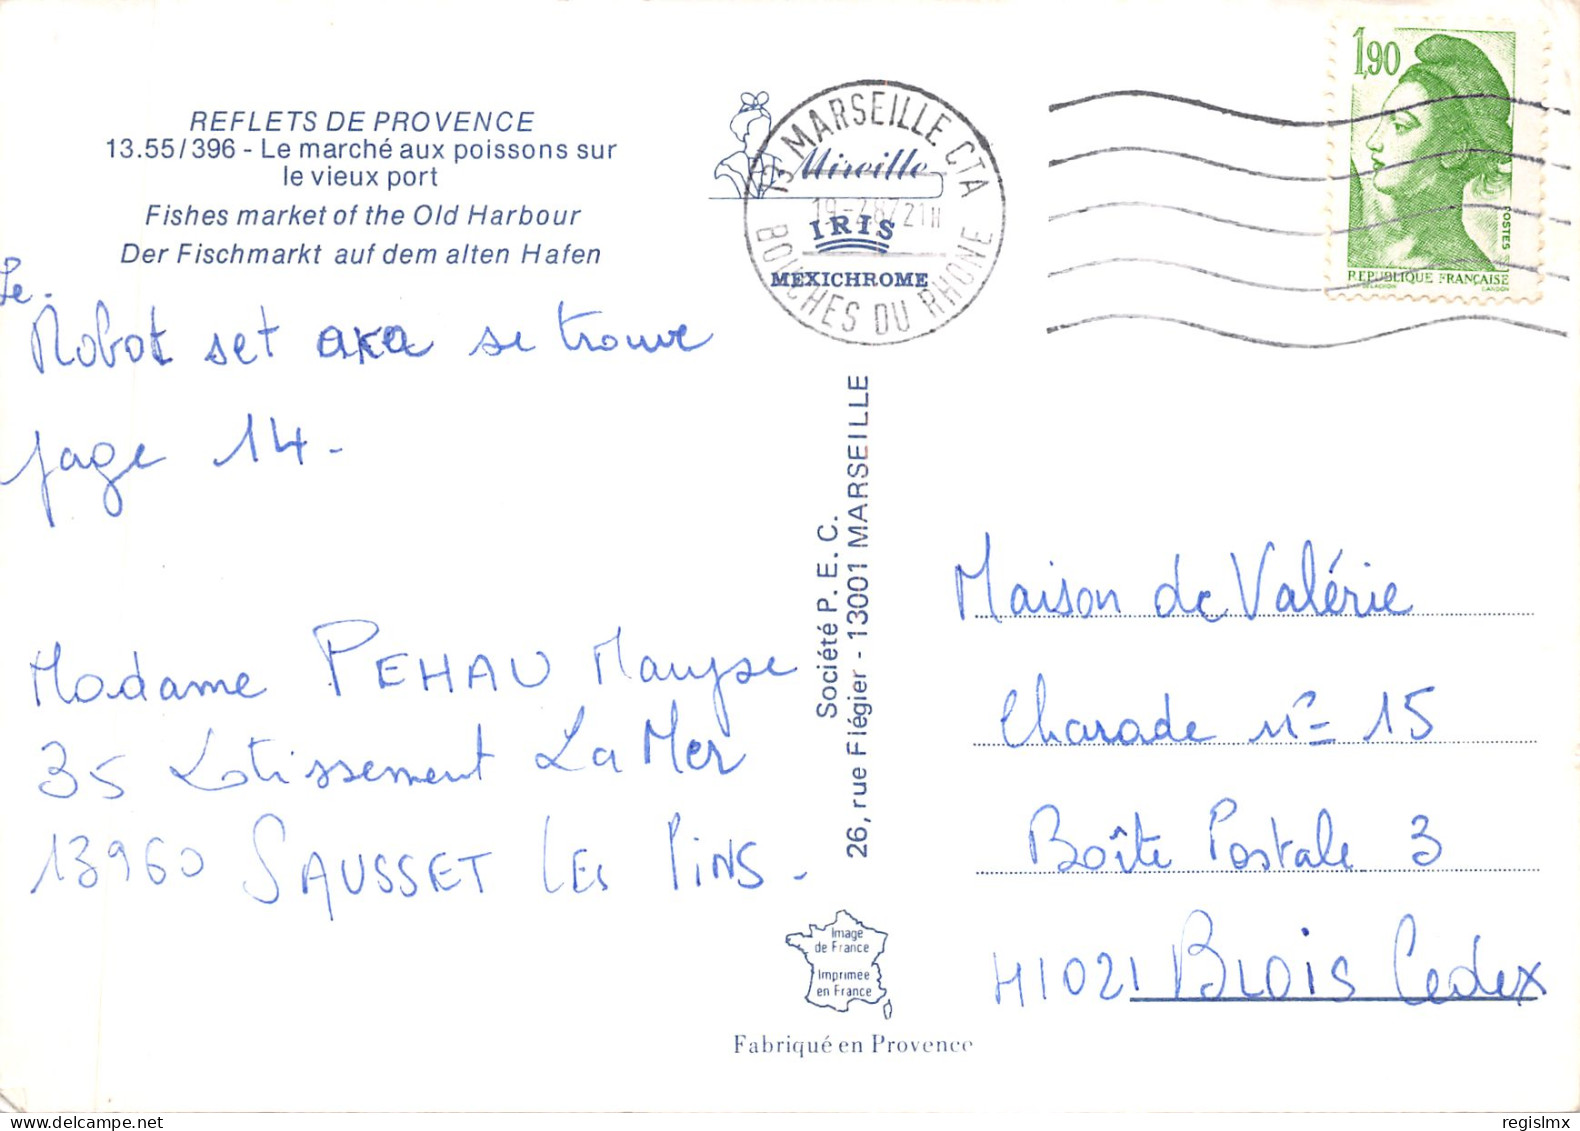 REFLETS DE PROVENCE
13.55/396 - Le marché aux poissons sur
le vieux port
Fishes market of the Old Harbour
Der Fischmarkt auf dem alten Hafen
Le.
Robot set aka se trouve
page 14.
Madame PEHAU Maryse
35 Lotissement La Mer
13960 SAUSSET LES PINS.
Mireille
IRIS
MEXICHROME
13 MARSEILLE CTA
BOUCHES DU RHONE
1,90
POSTES
REPUBLIQUE FRANÇAISE
Société P.E.C.
26, rue Flégier - 13001 MARSEILLE
Maison de Valérie
Charade n° 15
Boîte Postale 3
41021 BLOIS Cedex
Image
de France
Imprimee
en France
Fabriqué en Provence
delcampe.net
regislmx